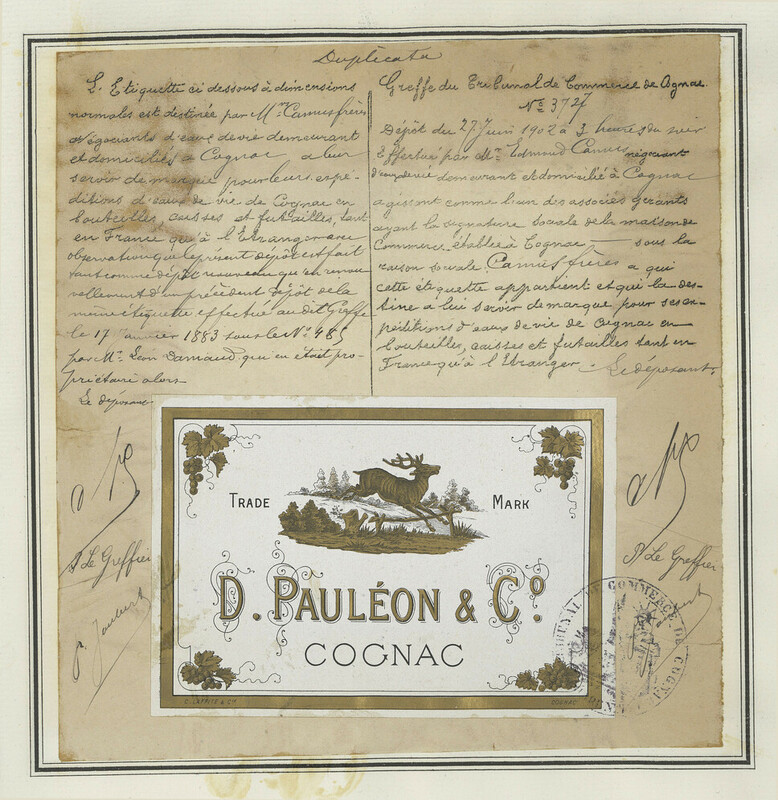 Duplicata
L'Etiquette ci dessous à dimensions
normales est destinée par Mrs Camus frères
Négociants d'eaux de vie demeurant
et domiciliés à Cognac à leur
servir de marque pour leurs expé-
ditions d'eaux de vie de Cognac en
bouteilles, caisses et futailles, tant
en France qu'à l'Etranger avec
observation que le présent dépôt est fait
tant comme dépôt nouveau qu'en renou-
vellement d'un précédent dépôt de la
même étiquette effectué au dit Greffe
le 17 Janvier 1883 sous le No 465
par Mr Léon Damaud qui en était pro-
priétaire alors
Le déposant
Greffe du Tribunal de Commerce de Cognac.
No 3727
Dépôt du 27 Juin 1902 à 3 heures du soir
Effectué par Mr Edmond Camus négociant
d'eaux de vie demeurant et domicilié à Cognac
agissant comme l'un des associés gérants
ayant la signature sociale de la maison de
Commerce établie à Cognac — sous la
raison sociale Camus frères à qui
cette étiquette appartient et qui la des-
tine à lui servir de marque pour ses ex-
péditions d'eaux de vie de Cognac en
bouteilles, caisses et futailles tant en
France qu'à l'Etranger. Le déposant.
Le Greffier
Le Greffier
TRADE MARK
D. PAULÉON & Co
COGNAC
COGNAC
TRIBUNAL DE COMMERCE DE COGNAC